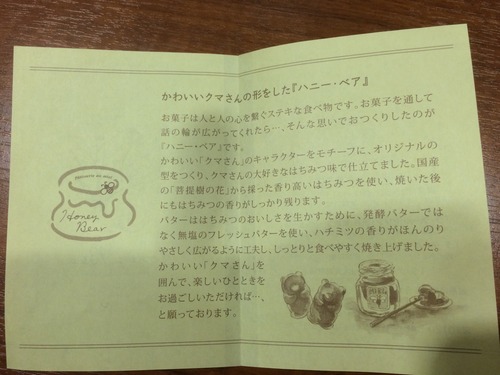 かわいいクマさんの形をした『ハニー・ベア』
お菓子は人と人の心を繋ぐステキな食べ物です。お菓子を通して
話の輪が広がってくれたら…、そんな思いでおつくりしたのが
『ハニー・ベア』です。
かわいい「クマさん」のキャラクターをモチーフに、オリジナルの
型をつくり、クマさんの大好きなはちみつ味で仕立てました。国産
の「菩提樹の花」から採った香り高いはちみつを使い、焼いた後
にもはちみつの香りがしっかり残ります。
バターははちみつのおいしさを生かすために、発酵バターでは
なく無塩のフレッシュバターを使い、ハチミツの香りがほんのり
やさしく広がるように工夫し、しっとりと食べやすく焼き上げました。
かわいい「クマさん」を
囲んで、楽しいひとときを
お過ごしいただければ…、
と願っております。
Honey
Bear